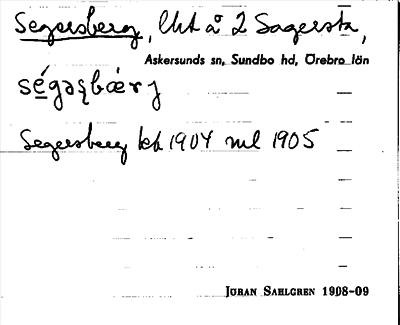 Segersberg, lht å 2 Sagersta,
Askersunds sn, Sundbo hd, Örebro län
ségəʂbæ̀rj
Segersberg kb 1904 ml 1905
JÖRAN SAHLGREN 1908-09